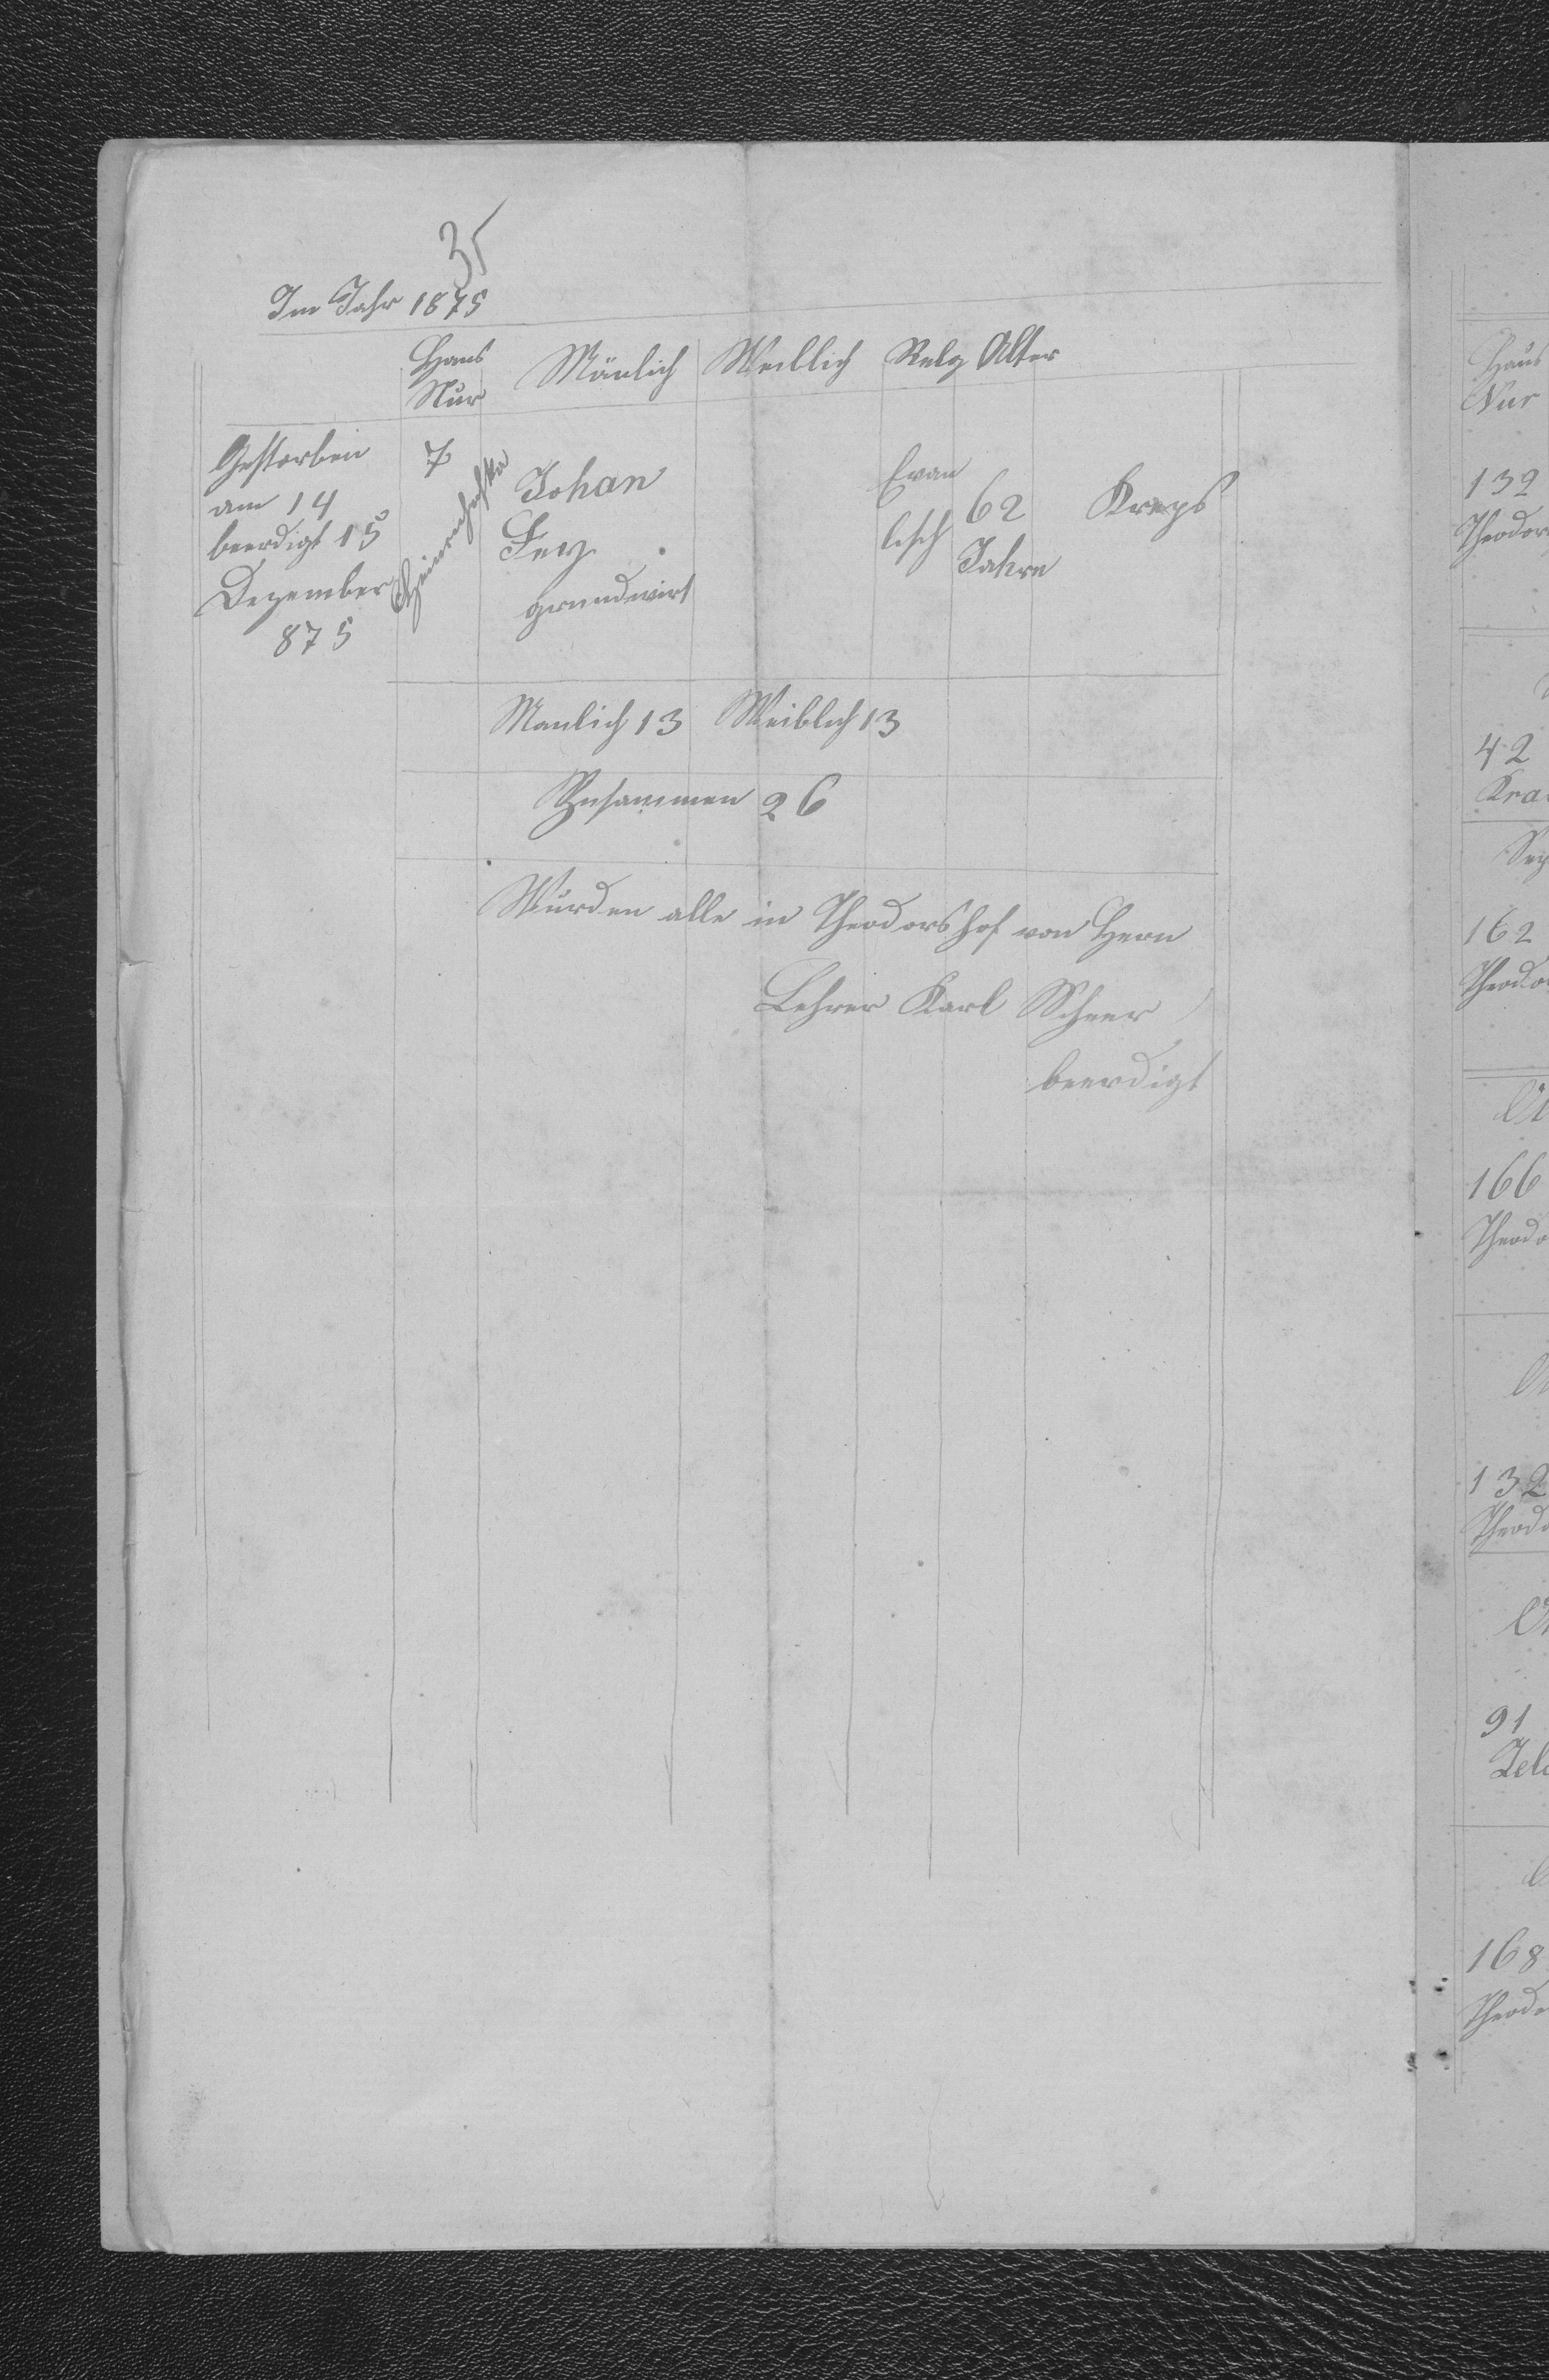 35
Im Jahr 1875
Haus Nur Mänlich Weiblich Relg Alter
Gestorben
am 14
beerdigt 15
Dezember
875
7
Johan
Fey
grundwirt
Evan
lisch
62
Jahre
Kreps
Manlich 13 Weiblich 13
Zusammen 26
Wurden alle in Theodorshof von Hern
Lehrer Karl Scherr
beerdigt
Haus
Nur
132
Theodor
42
162
Theodo
166
Theodo
132
Theodo
91
168
Theodo